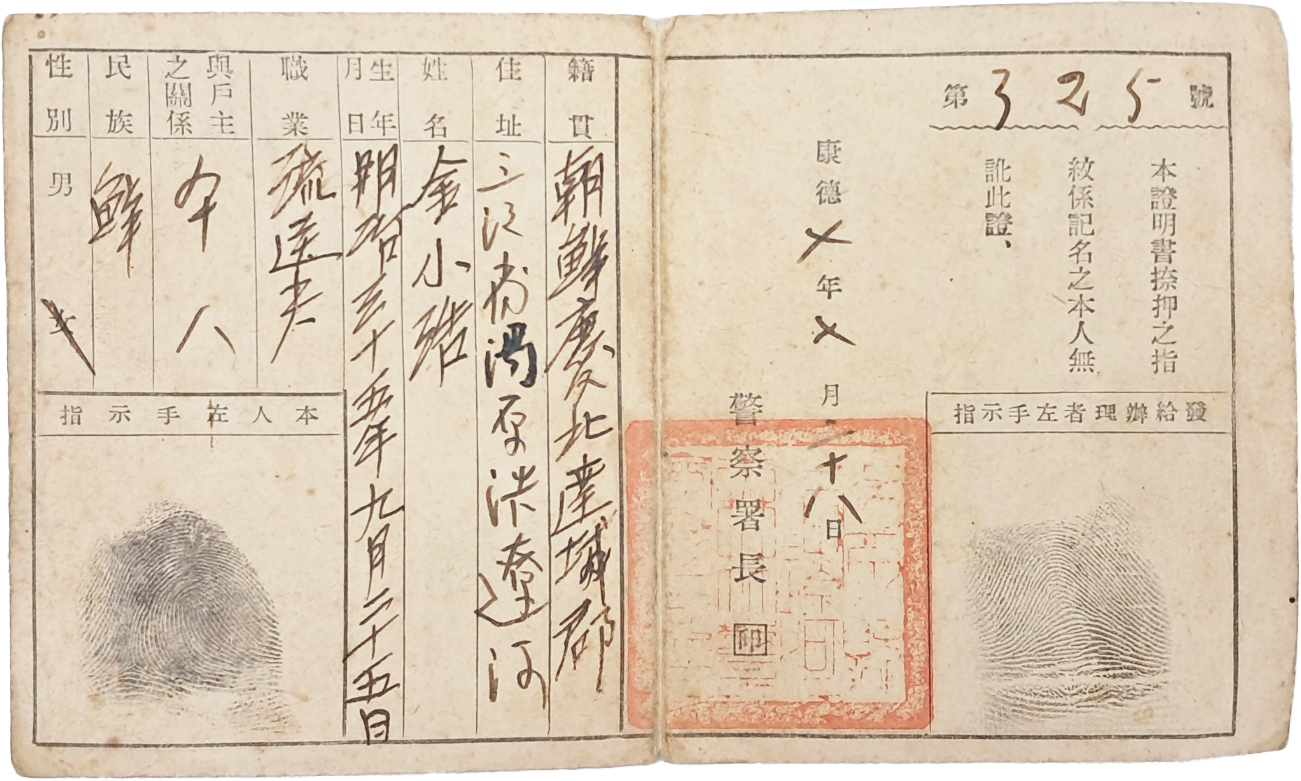 第 325 號
本證明書捺押之指
紋係記名之本人無
訛此證、
康德 七 年 七 月 二十八 日
警察署長 印
發給辦理者左手示指
籍貫 朝鮮慶北達城郡
住址 三江省湯原洪遼河
姓名 金小浩
生年月日 明治三十五年九月二十五日
職業 疏送夫
與戶主之關係 本人
民族 鮮
性別 男 女
本人左手示指